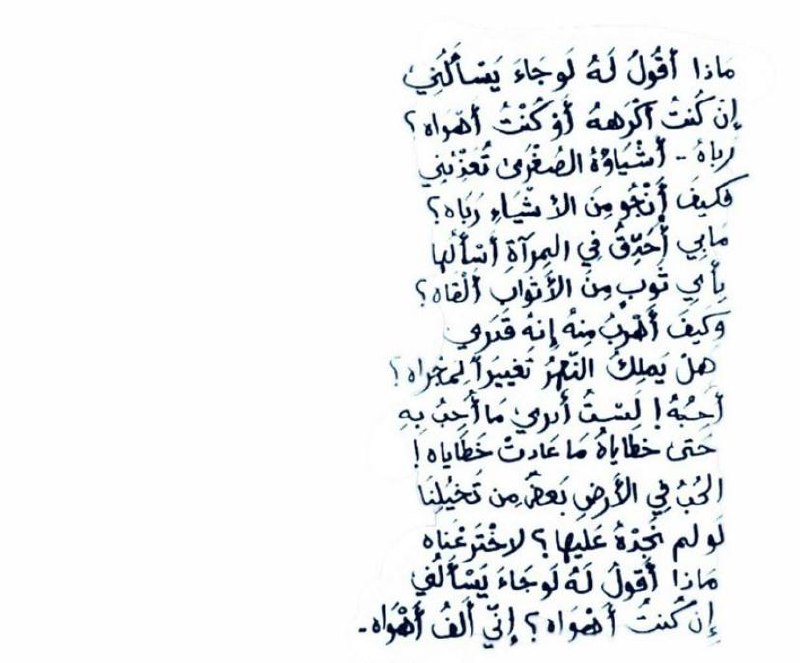 مَاذا أَقُولُ لَهُ لَو جَاءَ يَسْأَلُنِي
إِن كُنتُ أَكْرَههُ أَوْ كُنْتُ أَهْوَاه؟
ربّاهُ - أَشْيَاؤهُ الصُغْرَى تُعَذّبُنِي
فكيفَ أَنْجُو مِنَ الأشْيَاءِ رَبّاه؟
مَابِي أُحَدِّقُ فِي المِرآةِ أَسْأَلُها
بِأَيِّ ثَوبٍ مِنَ الأَثوَابِ أَلْقَاه؟
وَكَيفَ أَهْرُبُ مِنهُ إِنهُ قَدَرِي
هَلْ يَملِكُ النّهرُ تَغييرَاً لِمَجْراه؟
أُحِبُهُ! لَسْتُ أَدرِي مَا أُحِبُ بِهِ
حَتى خطَاياهُ مَا عَادتْ خَطَاياه!
الحُبُ فِي الأَرضِ بَعضٌ مِن تَخَيُلِنَا
لَو لم نَجِدْهُ عَليها؟ لاخْتَرَعْنَاه
مَاذا أَقُولُ لَهُ لَو جَاءَ يَسْأَلُنِي
إِن كُنتُ أَهْوَاه؟ إِنّي أَلفُ أَهْوَاه-